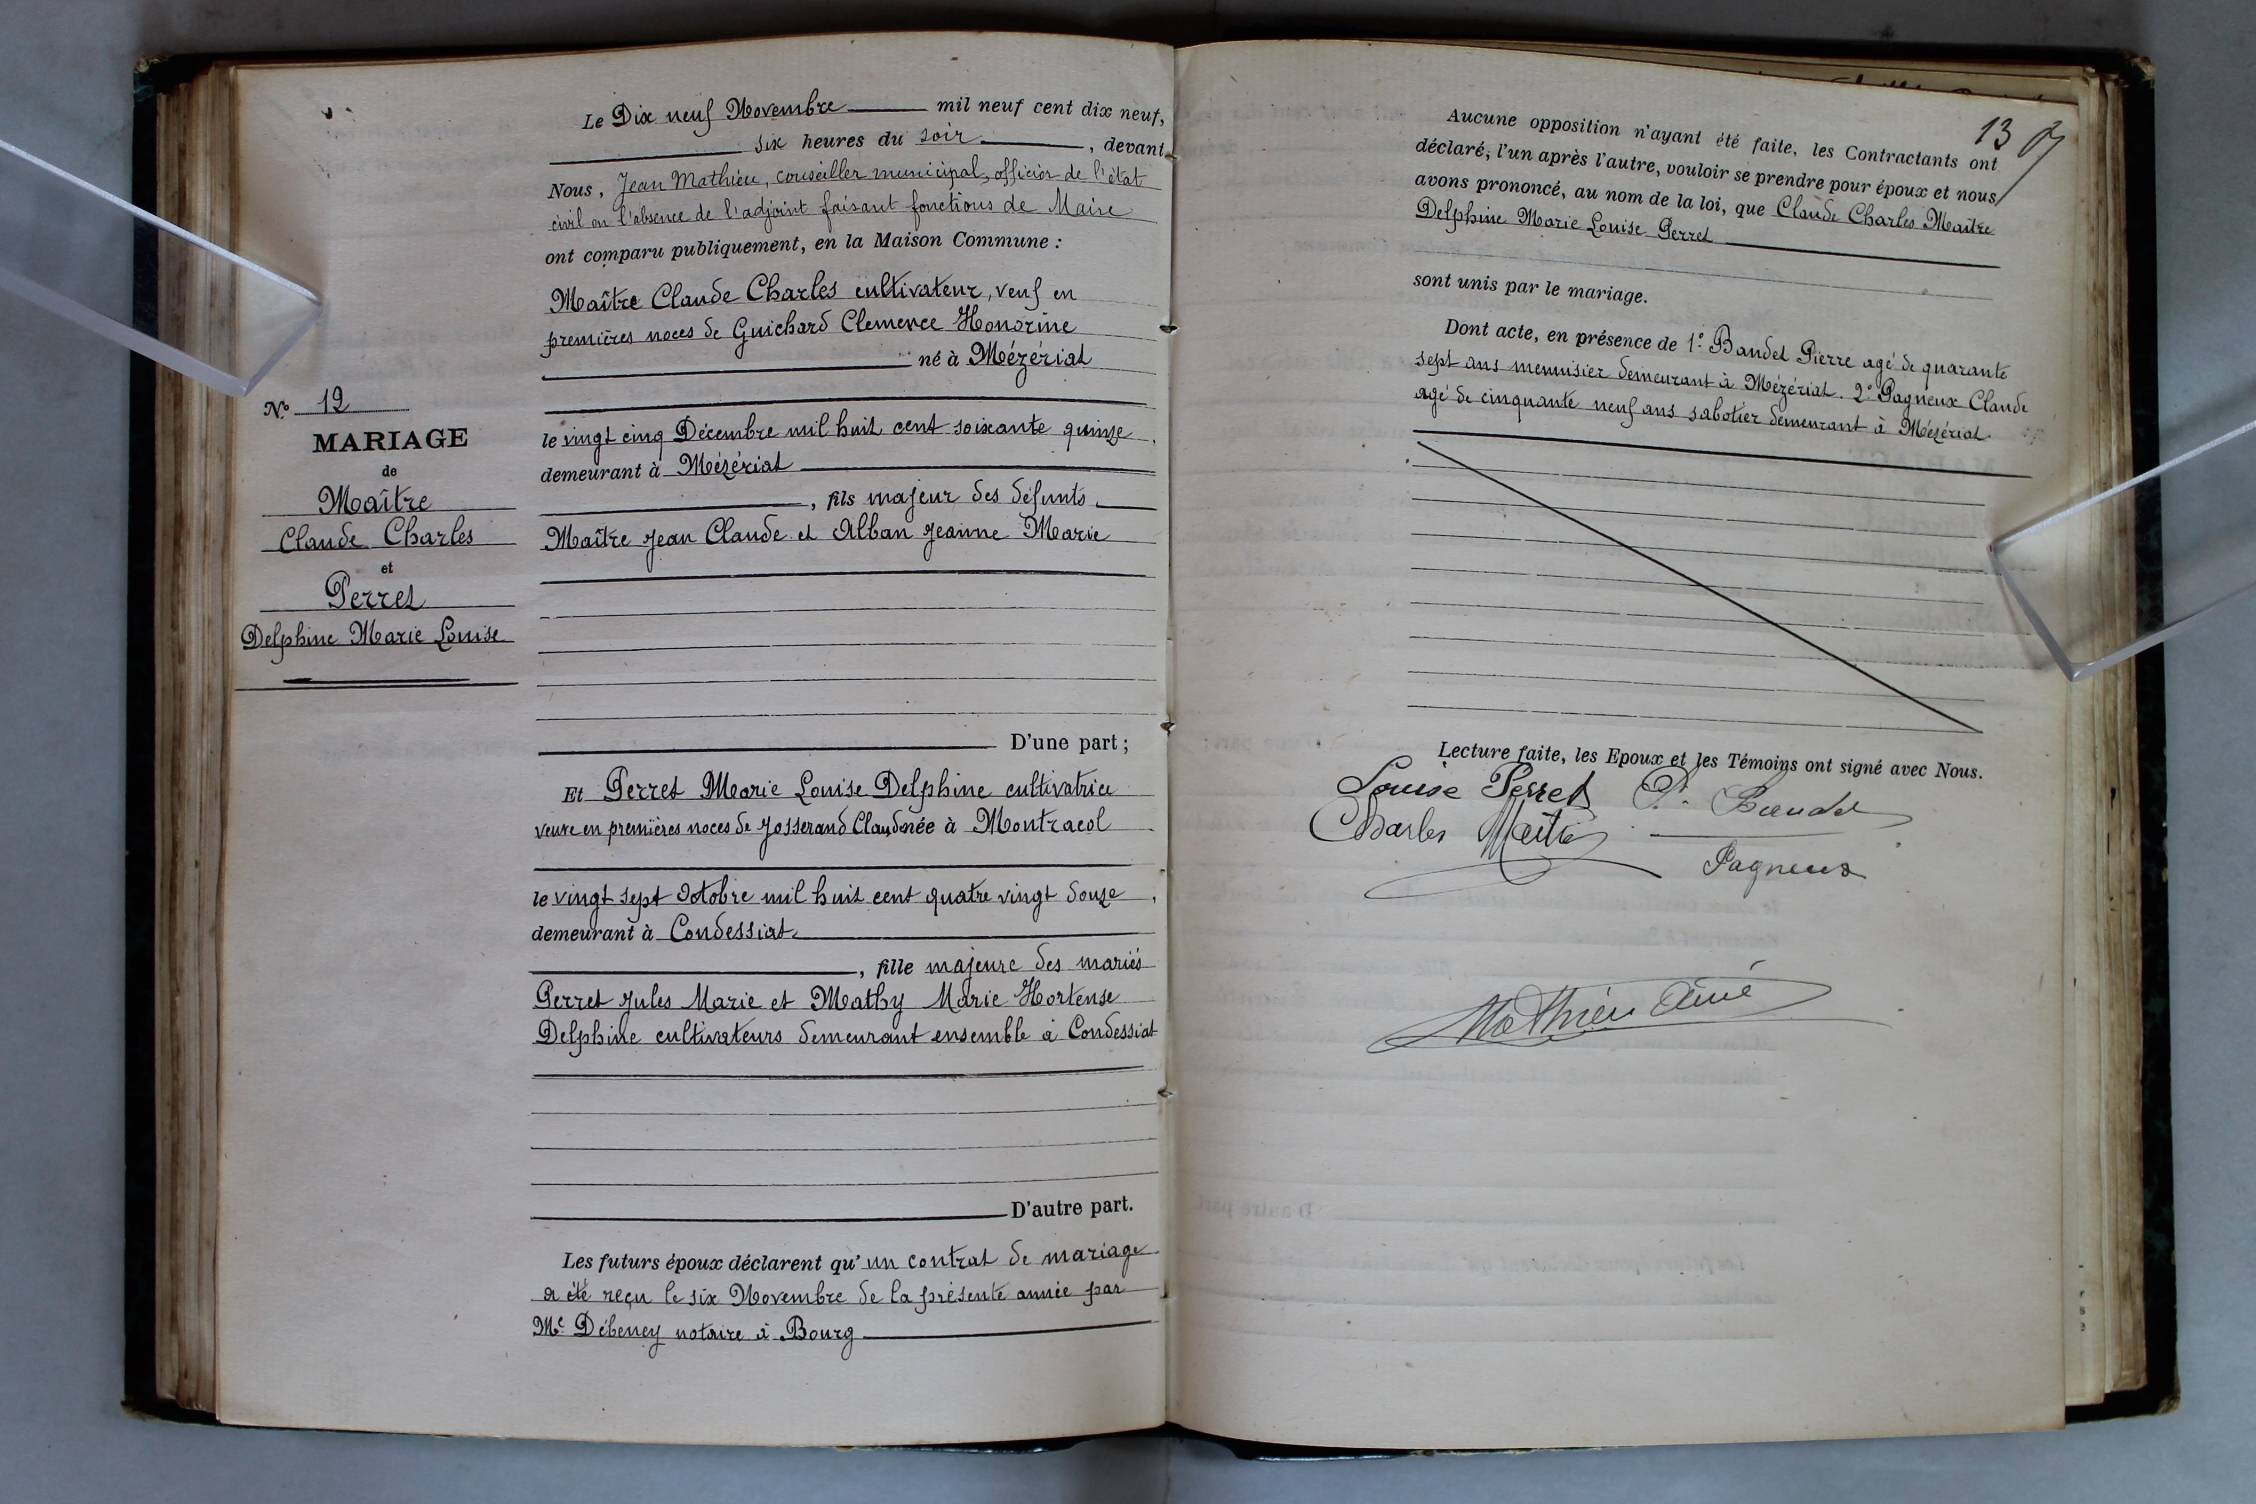 N° 12
MARIAGE
de
Maître
Claude Charles
et
Perret
Delphine Marie Louise
Le Dix neuf Novembre mil neuf cent dix neuf,
six heures du soir, devant
Nous, Jean Mathieu, conseiller municipal, officier de l'état
civil en l'absence de l'adjoint faisant fonctions de Maire
ont comparu publiquement, en la Maison Commune :
Maître Claude Charles cultivateur, veuf en
premières noces de Guichard Clemence Honorine
né à Mézériat
le vingt cinq Décembre mil huit cent soixante quinze,
demeurant à Mézériat
, fils majeur des défunts
Maître Jean Claude et Alban Jeanne Marie
D'une part ;
Et Perret Marie Louise Delphine cultivatrice
veuve en premières noces de Josserand Claude née à Montracol
le vingt sept Octobre mil huit cent quatre vingt douze,
demeurant à Condessiat
, fille majeure des mariés
Perret Jules Marie et Mathy Marie Hortense
Delphine cultivateurs demeurant ensemble à Condessiat
D'autre part.
Les futurs époux déclarent qu'un contrat de mariage
a été reçu le six Novembre de la présente année par
Me Débeney notaire à Bourg
13
Aucune opposition n'ayant été faite, les Contractants ont
déclaré, l'un après l'autre, vouloir se prendre pour époux et nous
avons prononcé, au nom de la loi, que Claude Charles Maître
Delphine Marie Louise Perret
sont unis par le mariage.
Dont acte, en présence de 1° Baudet Pierre agé de quarante
sept ans menuisier demeurant à Mézériat. 2° Pagneux Claude
agé de cinquante neuf ans sabotier demeurant à Mézériat.
Lecture faite, les Epoux et les Témoins ont signé avec Nous.
Louise Perret P. Baudet
Charles Maître
Pagneux
Mathieu Aimé